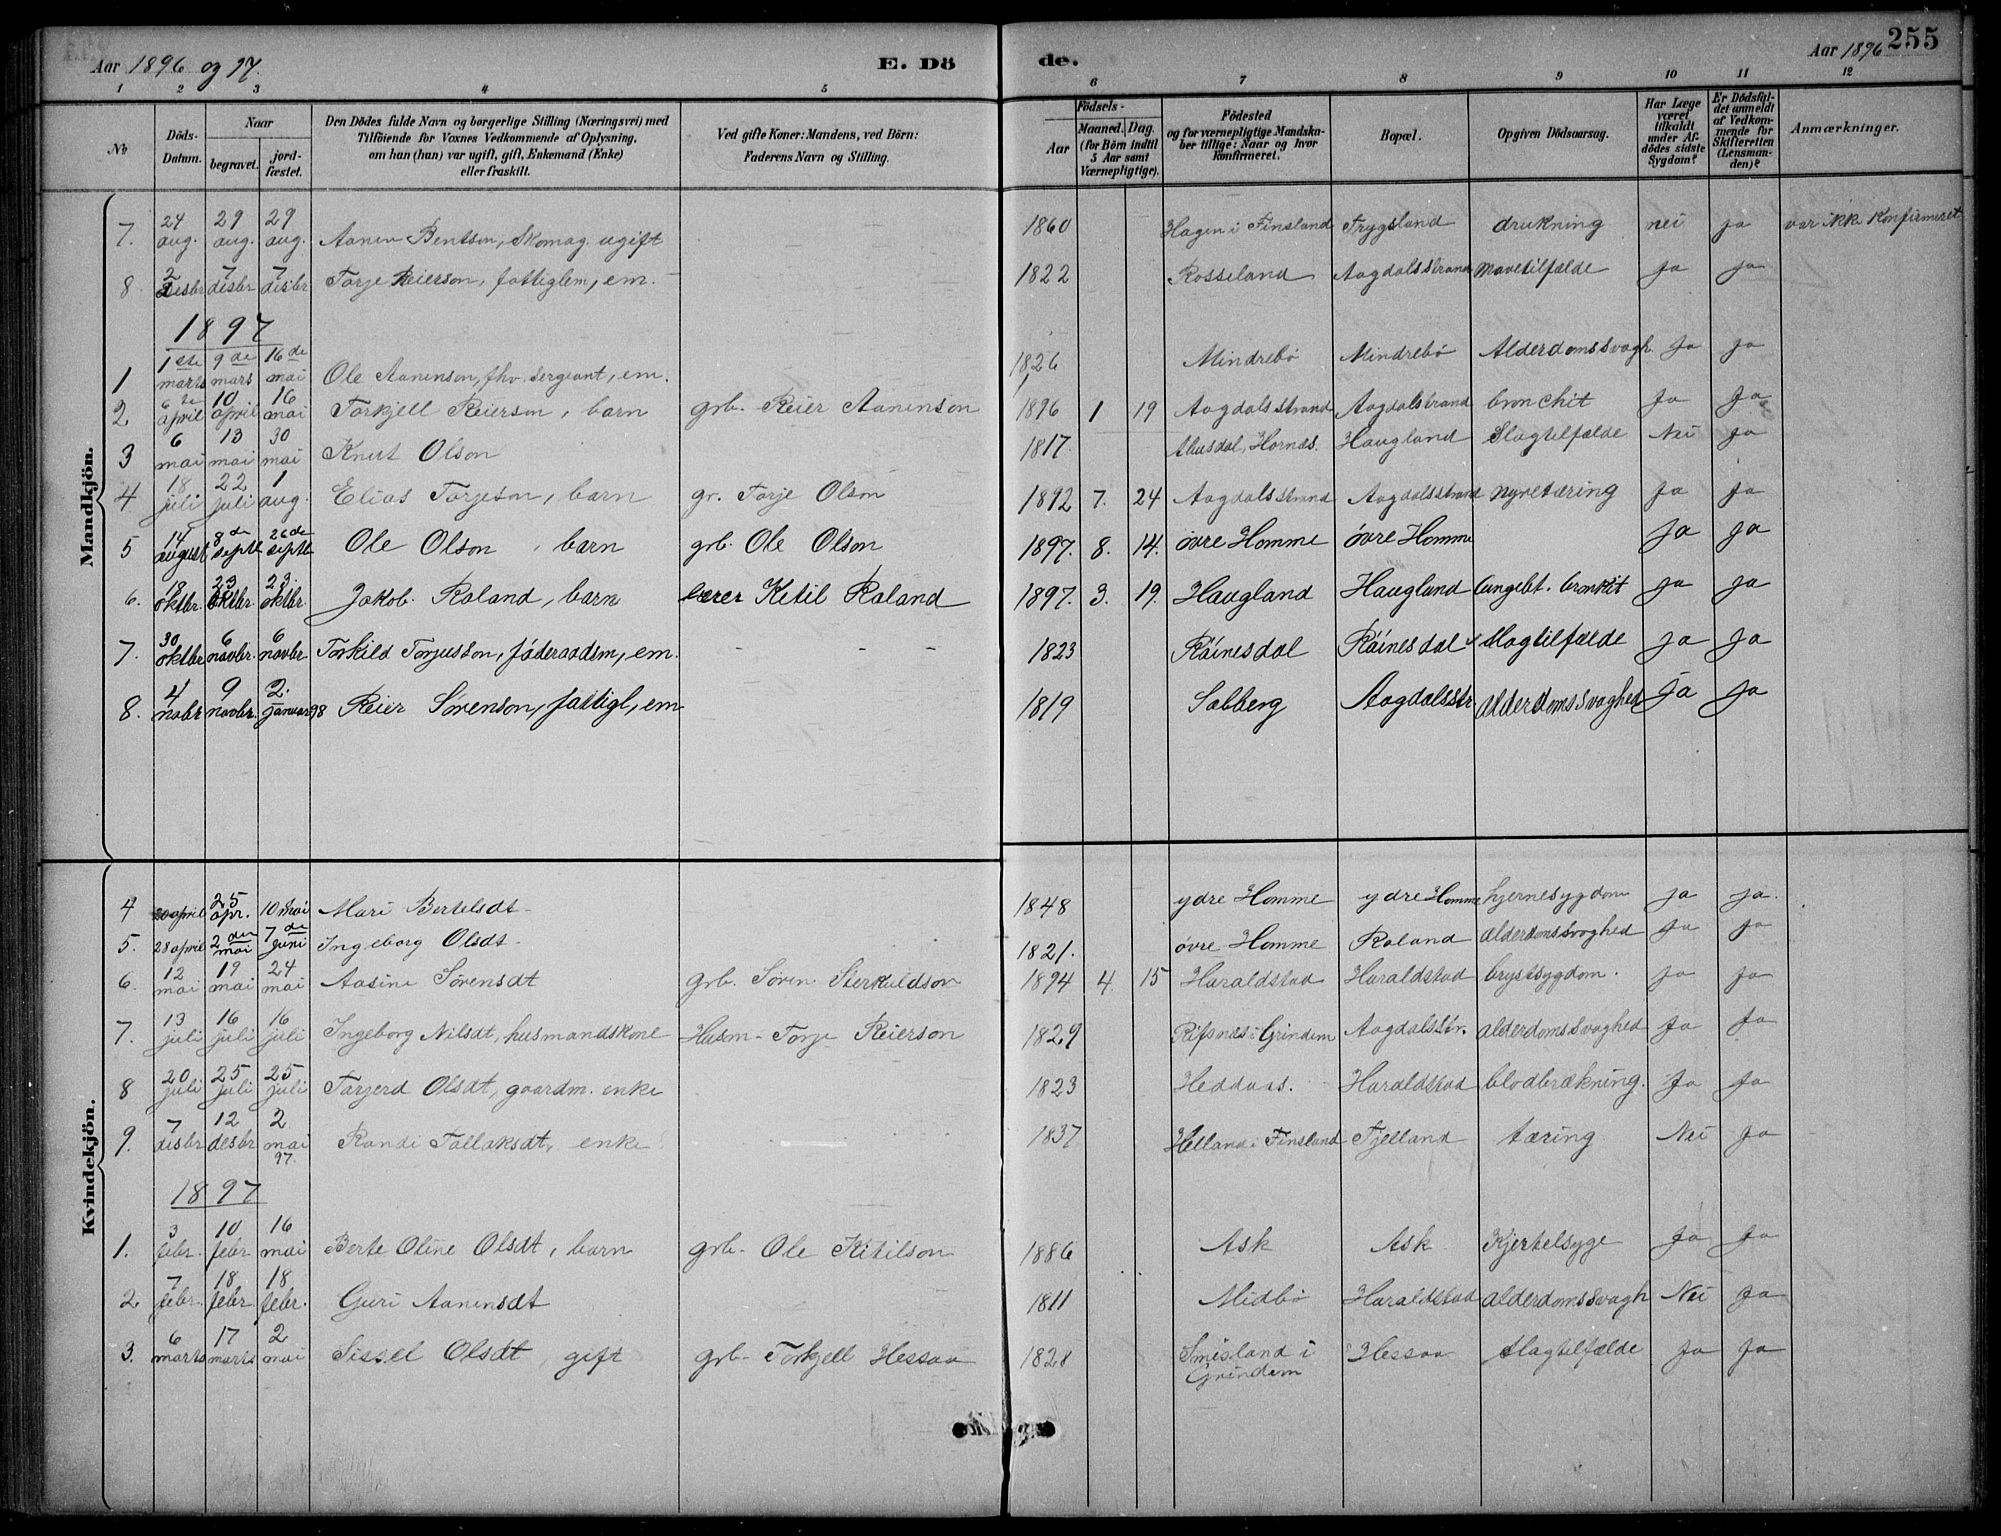 Aar 1896 og 97. E. Dö de. Aar 1896 255
1 2 3 4 5 6 7 8 9 10 11 12
No Döds-Datum. Naar begravet. jordfæstet. Den Dödes fulde Navn og borgerlige Stilling (Næringsvei) med Tilföiende for Voxnes Vedkommende af Oplysning, om han (hun) var ugift, gift, Enkemand (Enke) eller fraskilt. Ved gifte Koner: Mandens, ved Börn: Faderens Navn og Stilling. Födsels- Aar Maaned. Dag. (for Börn indtil 5 Aar samt Værnepligtige). Födested og for værnepligtige Mandskaber tillige: Naar og hvor Konfirmeret. Bopæl. Opgiven Dödsaarsag. Har Læge været tilkaldt under Afdödes sidste Sygdom? Er Dödsfaldet anmeldt af Vedkommende for Skifteretten (Lensmanden)? Anmærkninger.
Mandkjön.
7. 24 aug. 29 aug. 29 aug. Aanen Bentson, Skomag. ugift 1860 Hagen i Finsland Trygsland drukning nei ja var ikke Konfirmeret
8. 2 disbr 7 disbr 7 disbr Torje Reierson, fattiglem, em. 1822 Rosseland Aagdalsstrand Mavetilfælde ja ja
1897
1 1ste marts 9de mars 16de mai Ole Aanenson, fhv. sergeant, em. 1826 Mindrebø Mindrebø Alderdomssvagh. Ja ja
2 6te april 10 april 16 mai Torkjell Reierson, barn grb. Reier Aanenson 1896 1 19 Aagdalsstrand Aagdalstrand bronchit Ja Ja
3 6 mai 13 mai 30 mai Knut Olson 1817. Hornæs. Haugland Slagtilfælde Nei Ja
4 18 juli 22 juli 1 aug. Elias Torjeson, barn gr. Torje Olson 1892 7. 24 Aagdalsstrand Aagdalsstrand nyretæring Ja Ja
5 14 august 8de septb 26de septb Ole Olson, barn grb. Ole Olson 1897. 8. 14. øvre Homme øvre Homme Ja Ja
6. 19 oktbr. 23 oktbr. 23. oktbr. Jakob Roland, barn lærer Ketil Roland 1897. 3. 19. Haugland Haugland lungebt. bronkit ja ja
7. 30 oktbr 6 novbr. 6 novbr. Torkild Torjusson, føderaadsm, em. - - - 1823 Røinesdal Røinesdal Slagtilfælde ja ja
8. 4 nobr 9 novbr. 2. januar 98 Reier Sørenson, fattigl, em 1819 Solberg Aagdalsstr alderdomssvaghed ja ja
Kvindekjön.
4 20 april 25 apr. 10 mai Mari Bertelsdt. 1848 ydre Homme ydre Homme hjernesygdom ja ja.
5. 28 april 2den mai 7de juni Ingeborg Olsdt. 1821. øvre Homme Roland alderdomssvaghed ja ja
6. 12 mai 19 mai 24 mai Aasine Sørensdt grb. Søren Sterkuldson 1894 4. 15 Haraldstad Haraldstad brystsygdom. ja ja
7. 13 juli 16 juli 16 juli Ingeborg Nilsdt, husmandskone Husm. Torje Reierson 1829 Rifsnes i Grindem Aagdalsstr. alderdomssvaghed Ja Ja
8 20 juli 25 juli 25 juli Torjerd Olsdt, gaardm. enke 1823 Heddaas. Haraldstad blodbrækning. Ja Ja
9. 7 disbr 12 desbr 2 mai 97. Randi Tallaksdt, enke 1837 Helland i Finsland Fjelland tæring Nei Ja
1897
1. 3 febr. 10 febr 16 mai Berte Oline Olsdt, barn grb. Ole Kitilson 1886 Ask Ask Kjertelsyge Ja Ja
2. 7 febr. 18 febr 18 febr. Guri Aanensdt 1811 Midbø Haraldstad alderdomssvagh Nei Ja
3. 6 marts 17 marts 2 mai Sissel Olsdt gift grb. Torkjell Hessaa 1828 Smisland i Grindem Hessaa Slagtilfælde Ja Ja